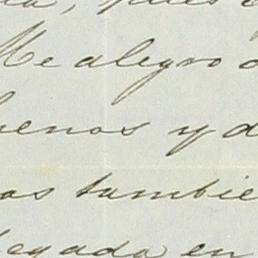 Me alegro
buenos y d
os tambie
legada en